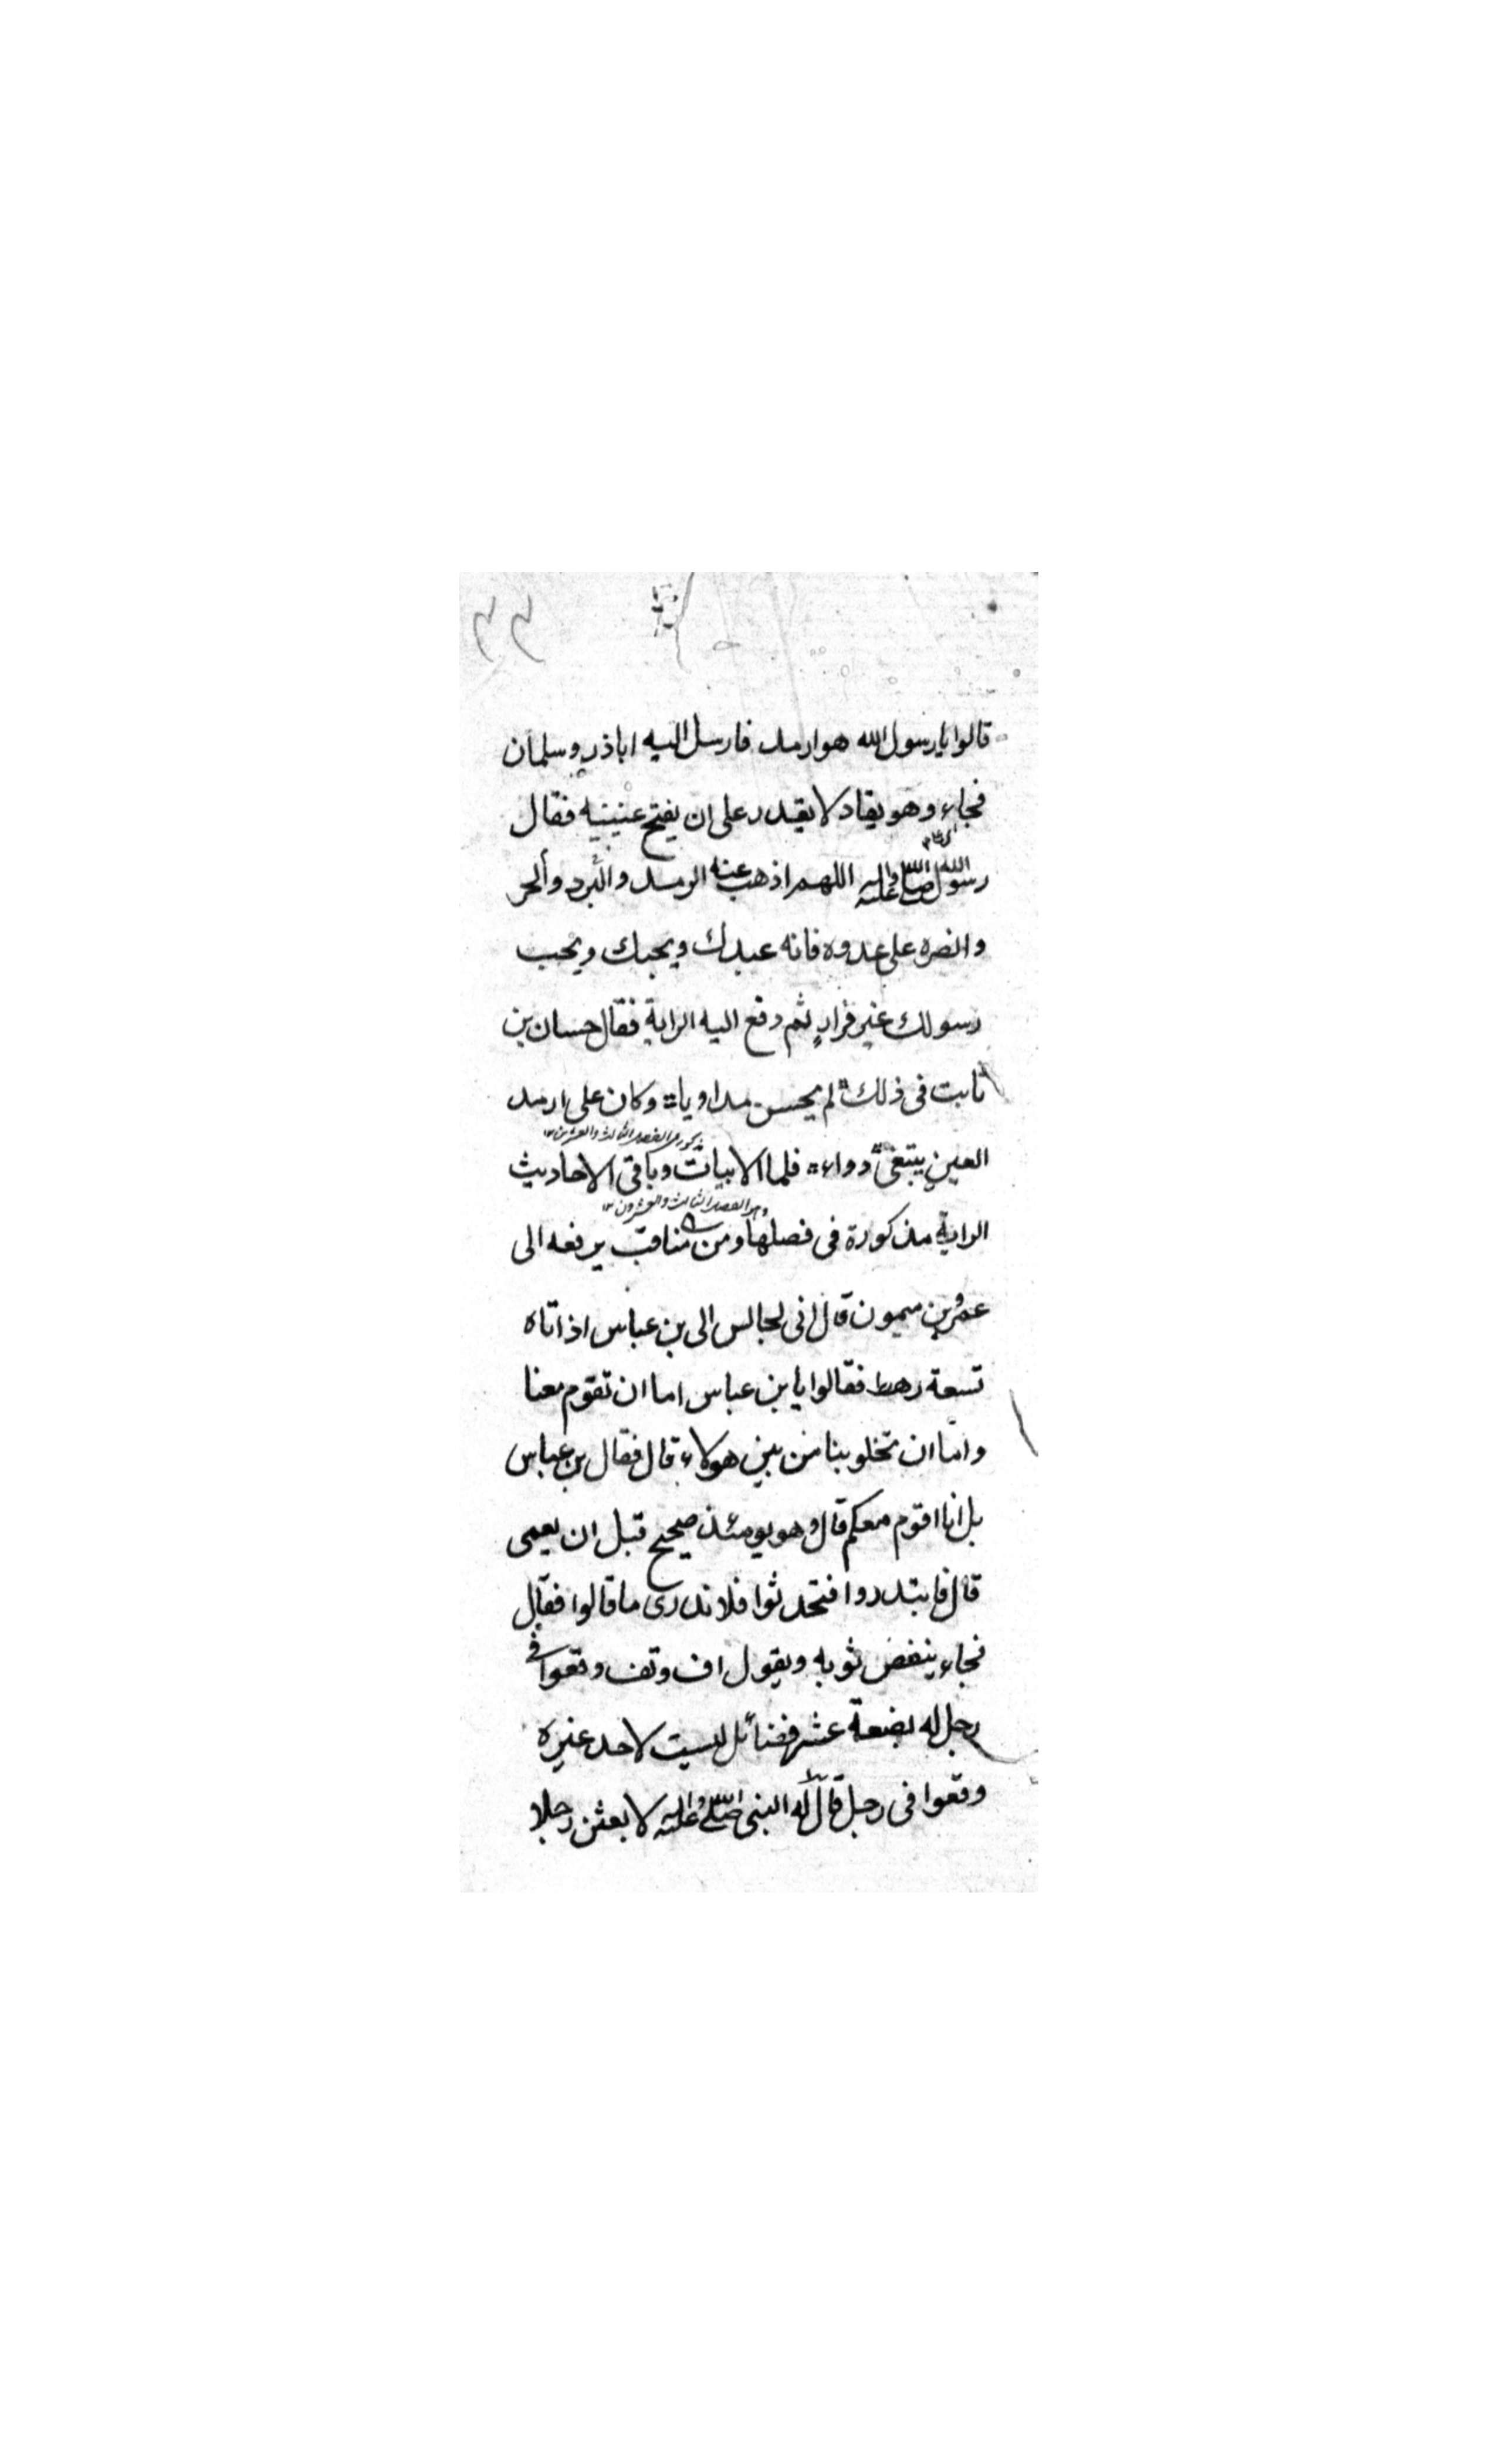 ٣٣
قالوا يا رسول الله هو ارمد فارسل اليه اباذر وسلمان
فجاء وهو يقاد لا يقدر على ان يفتح عينيه فقال
رسول الله صلى الله عليه واله اللهم اذهب عنه الرمد والبرد والحر
وانصره على عدوه فانه عبدك ويحبك ويحب
رسولك غير فرار ثم دفع اليه الراية فقال حسان بن
ثابت فى ذلك لم يحس مداويا وكان على ارمد
مذكور فى الفصل الثالث والعشرين
العين يبتغى دواء فلما الابيات وباقى الاحاديث
وهو الفصل الثالث والعشرون
الراية مذكورة فى فصلها ومن مناقب يرفعه الى
عمرو بن ميمون قال انى لجالس الى بن عباس اذ اتاه
تسعة رهط فقالوا يا بن عباس اما ان تقوم معنا
واما ان تخلو بنا من بين هولاء قال فقال بن عباس
بل انا اقوم معكم قال وهو يومئذ صحيح قبل ان يعمى
قال فابتدروا فتحدثوا فلا ندرى ما قالوا فقال
فجاء ينفض ثوبه ويقول اف وتف وقعوا فى
رجل له بضعة عشر فضائل ليست لاحد غيره
وقعوا فى رجل قال له النبى صلى الله عليه واله لابعثن رجلا